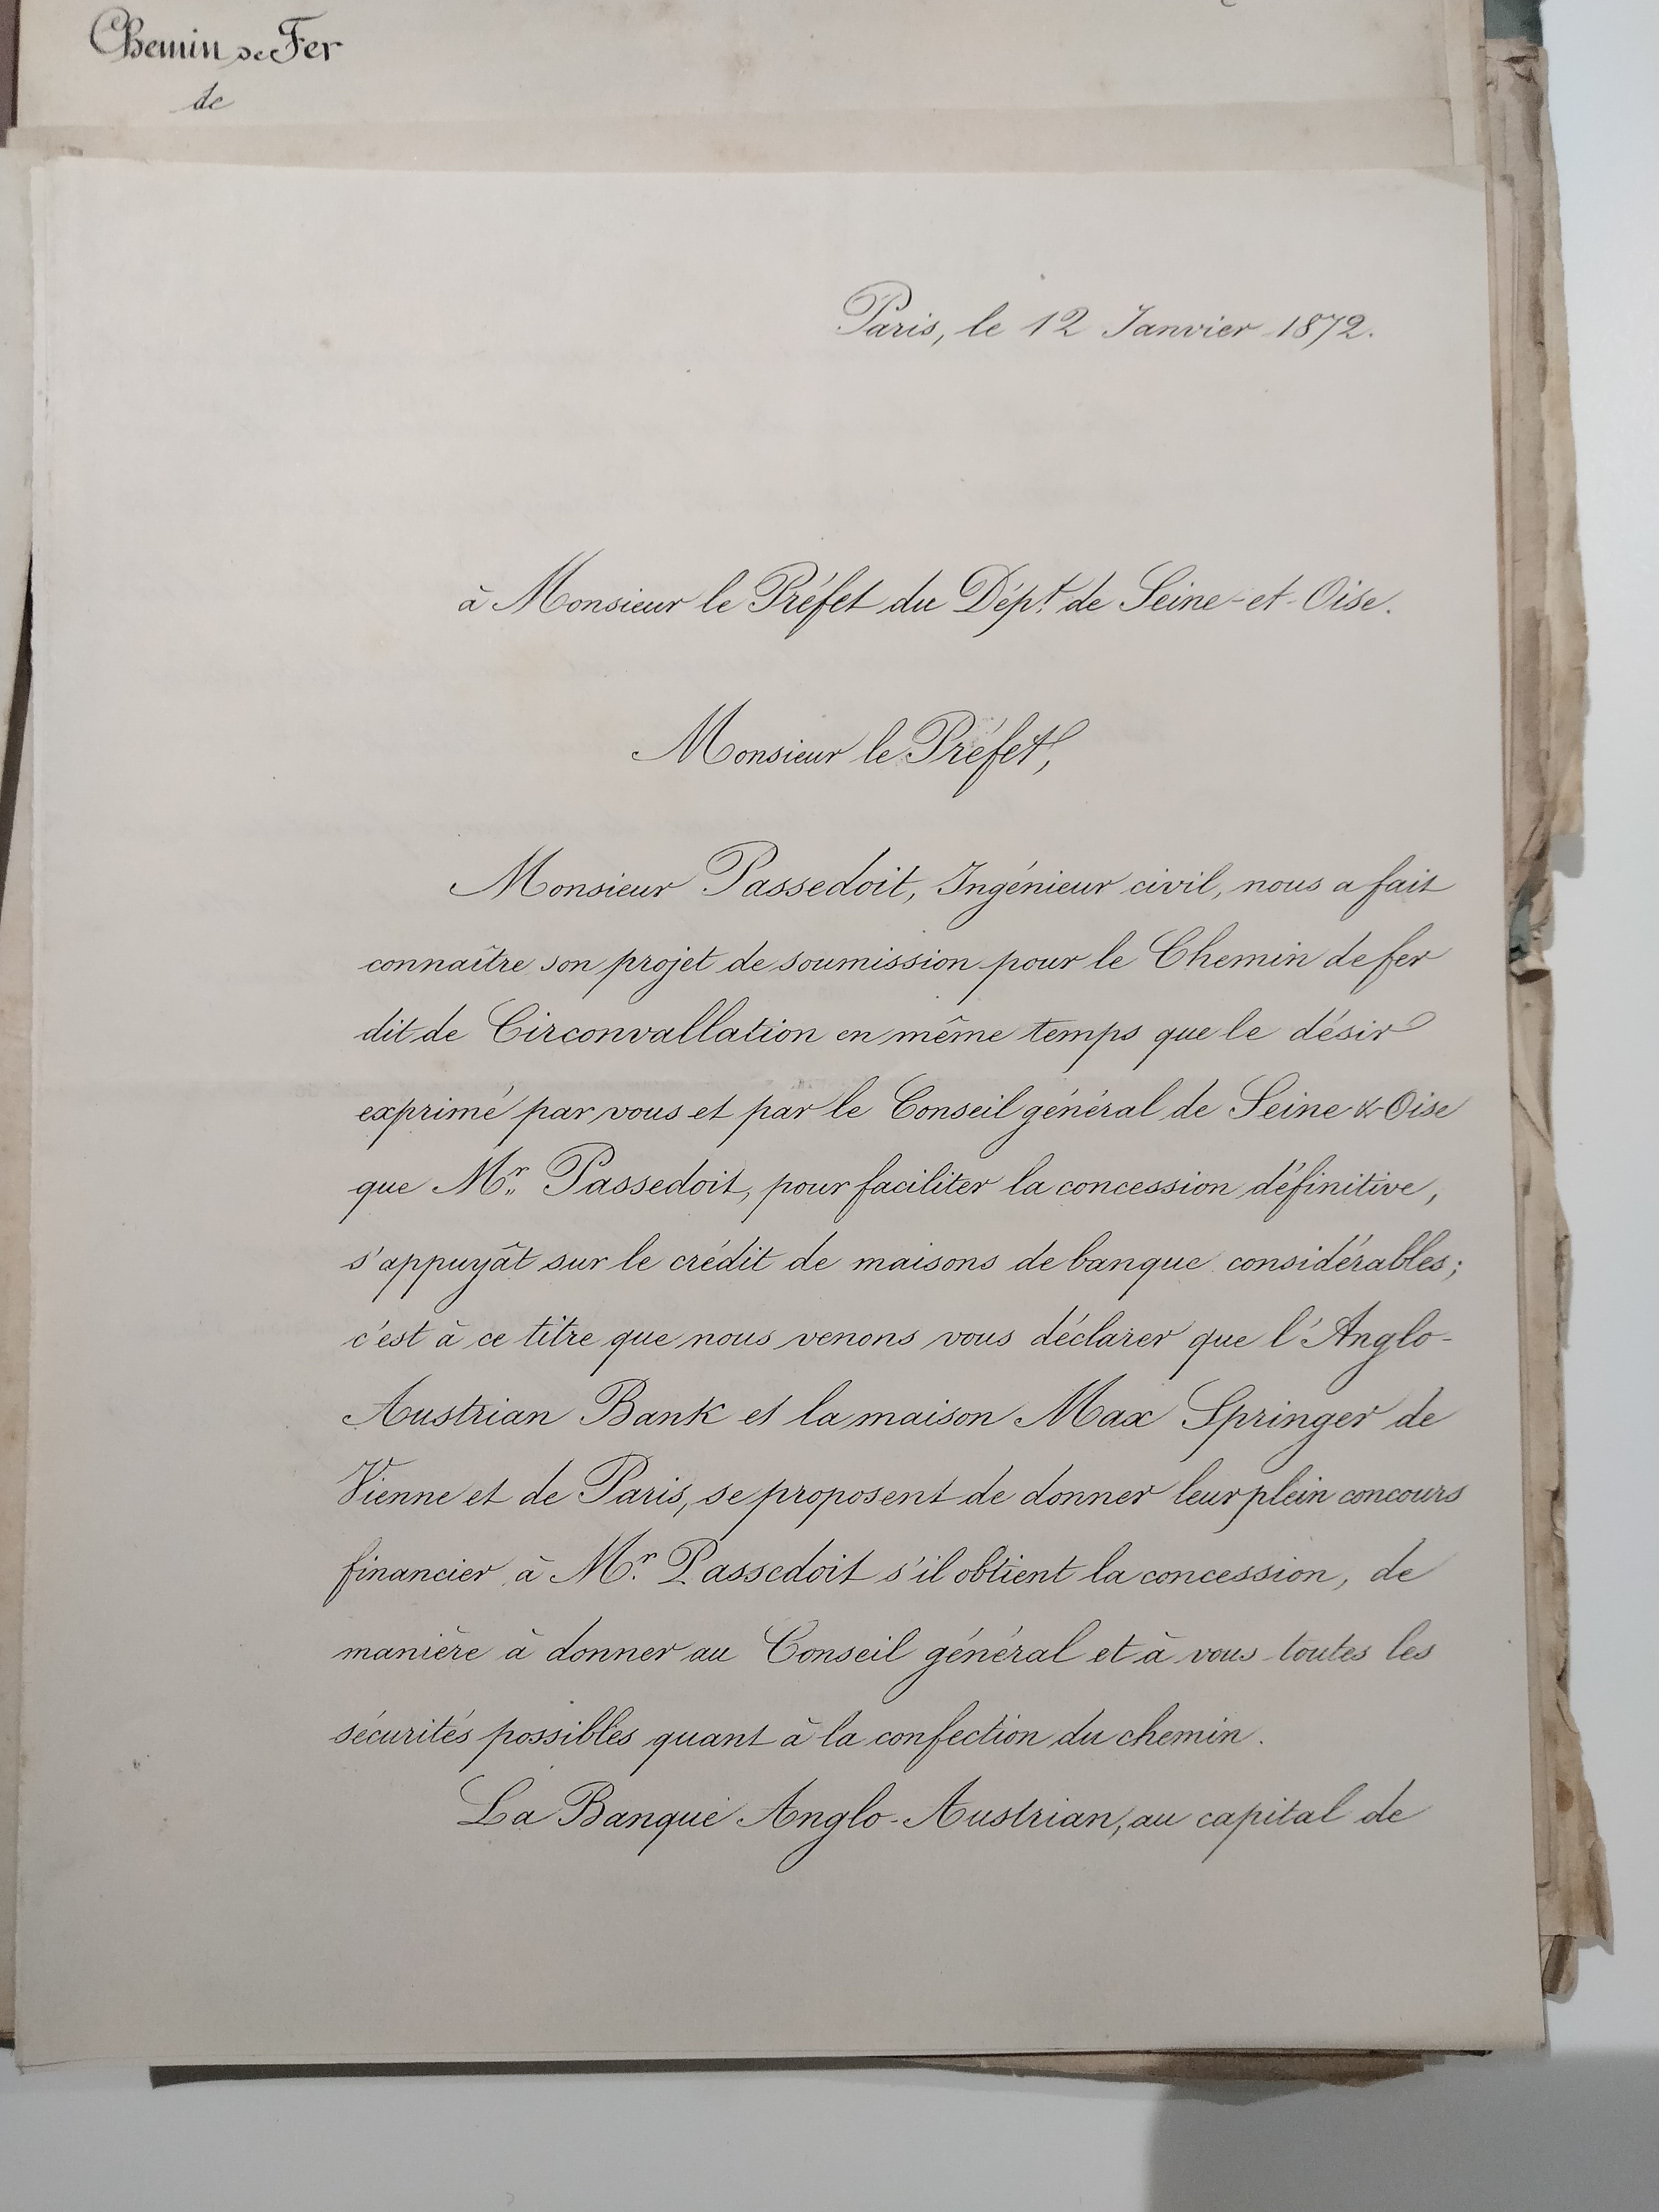 Chemin de Fer
de
Paris, le 12 Janvier 1872.
à Monsieur le Préfet du Dépt. de Seine-et-Oise.
Monsieur le Préfet,
Monsieur Passedoit, Ingénieur civil, nous a fait
connaître son projet de soumission pour le Chemin de fer
dit de Circonvallation en même temps que le désir
exprimé par vous et par le Conseil général de Seine & Oise
que Mr. Passedoit, pour faciliter la concession définitive,
s'appuyât sur le crédit de maisons de banque considérables;
c'est à ce titre que nous venons vous déclarer que l'Anglo-
Austrian Bank et la maison Max Springer de
Vienne et de Paris, se proposent de donner leur plein concours
financier à Mr. Passedoit s'il obtient la concession, de
manière à donner au Conseil général et à vous toutes les
sécurités possibles quant à la confection du chemin.
La Banque Anglo-Austrian, au capital de